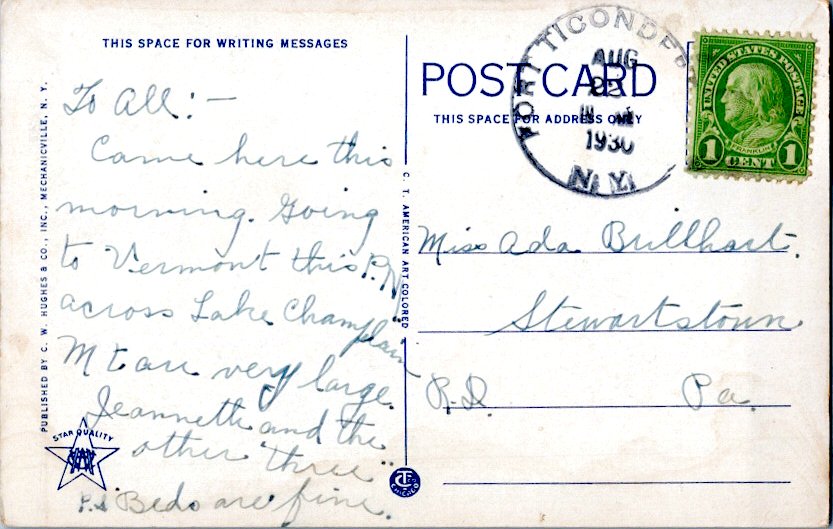 THIS SPACE FOR WRITING MESSAGES
To All:-
Came here this
morning. Going
to Vermont this P.M.
across Lake Champlain
Mt are very large.
Jeannette and the
other three
P.S Beds are fine.
PUBLISHED BY C. W. HUGHES & CO., INC., MECHANICVILLE, N. Y.
STAR QUALITY
C. T. AMERICAN ART COLORED
CT
CHICAGO
POST CARD
THIS SPACE FOR ADDRESS ONLY
FORT TICONDER
AUG
1930
N.Y.
UNITED STATES POSTAGE
FRANKLIN
1 CENT 1
Miss Ada Brillhart.
Stewartstown
R.D. Pa.